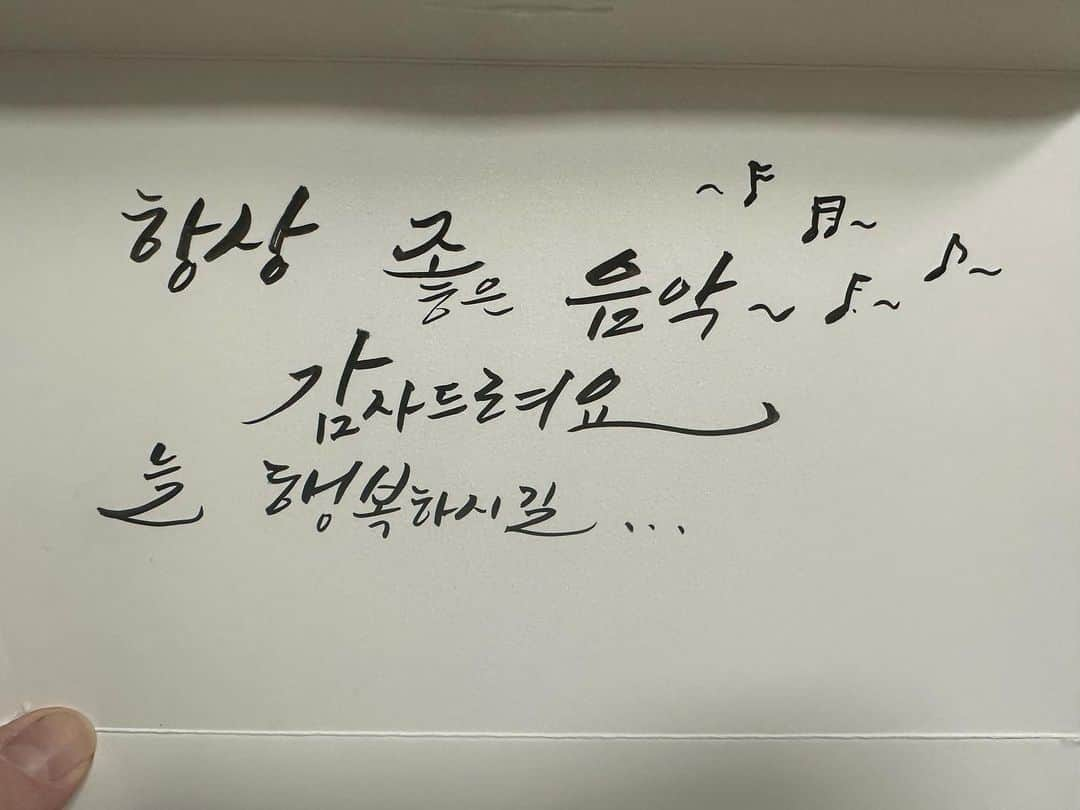 항상 좋은 음악~
감사드려요
늘 행복하시길...